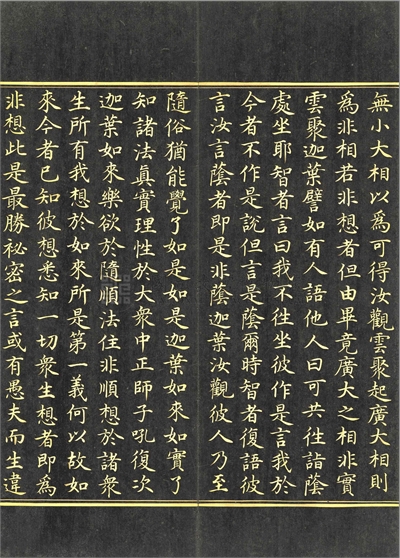 無小大相以為可得汝觀雲聚起廣大相則
為非相若非想者但由畢竟廣大之相非實
雲聚迦葉譬如有人語他人曰可共往詣蔭
處坐耶智者言曰我不往坐彼作是言我於
今者不作是說但言是蔭爾時智者復語彼
言汝言蔭者即是非蔭迦葉汝觀彼人乃至
隨俗猶能覺了如是如是迦葉如來如實了
知諸法真實理性於大衆中正師子吼復次
迦葉如來樂欲於隨順法住非順想於諸衆
生所有我想於如來所是第一義何以故如
來今者已知彼想悉知一切衆生想者即為
非想此是最勝祕密之言或有愚夫而生違